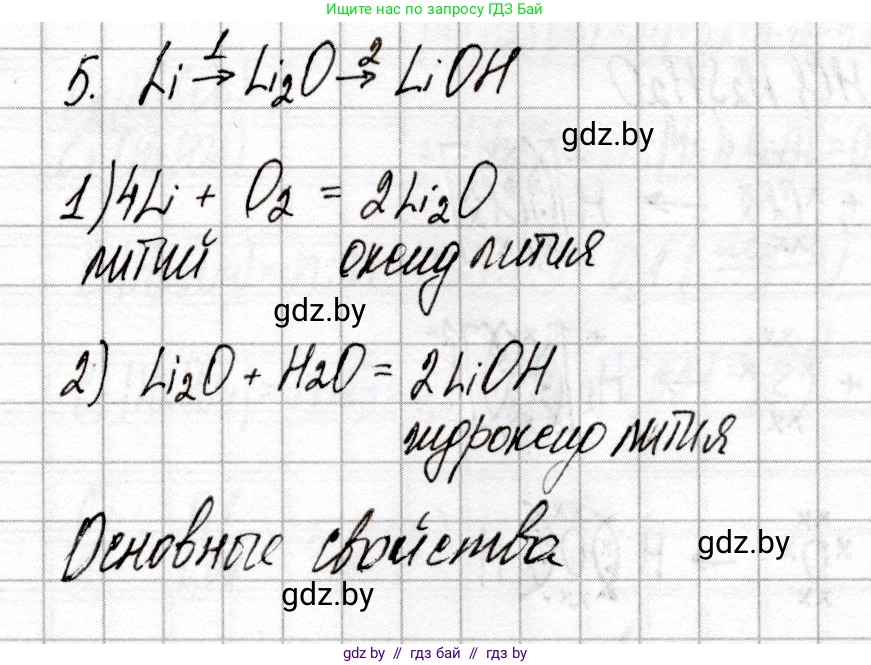 Ищите нас по запросу ГДЗ Бай
5. Li 1→ Li₂O 2→ LiOH
gdz.by
1) 4Li + O₂ = 2Li₂O
литий оксид лития
gdz.by
2) Li₂O + H₂O = 2LiOH
гидроксид лития
Основные свойства
gdz.by
gdz.by
gdz.by // гдз бай // gdz.by